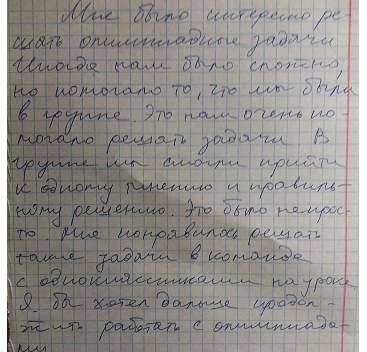 Мне было интересно ре-
шать олимпиадные задачи
Иногда нам было сложно,
но помогало то, что мы были
в группе. Это нам очень по-
могало решать задачи В
группе мы смогли прийти
к одному мнению и правиль-
ному решению. Это было непрос-
то. Мне понравилось решать
такие задачи в команде
с одноклассниками на уроке
Я бы хотел дальше продол-
жить работать с олимпиада-
ми